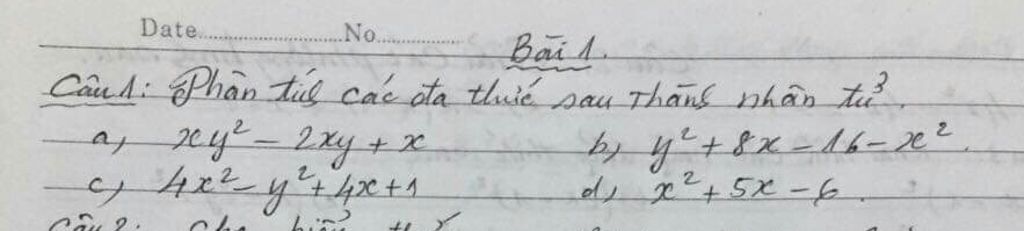 Date..................No..............
Bài 1.
Câu 1: Phân tích các đa thức sau thành nhân tử.
a, xy² - 2xy + x b, y² + 8x - 16 - x².
c, 4x² - y² + 4x + 1 d, x² + 5x - 6.
Câu 2: Cho biểu